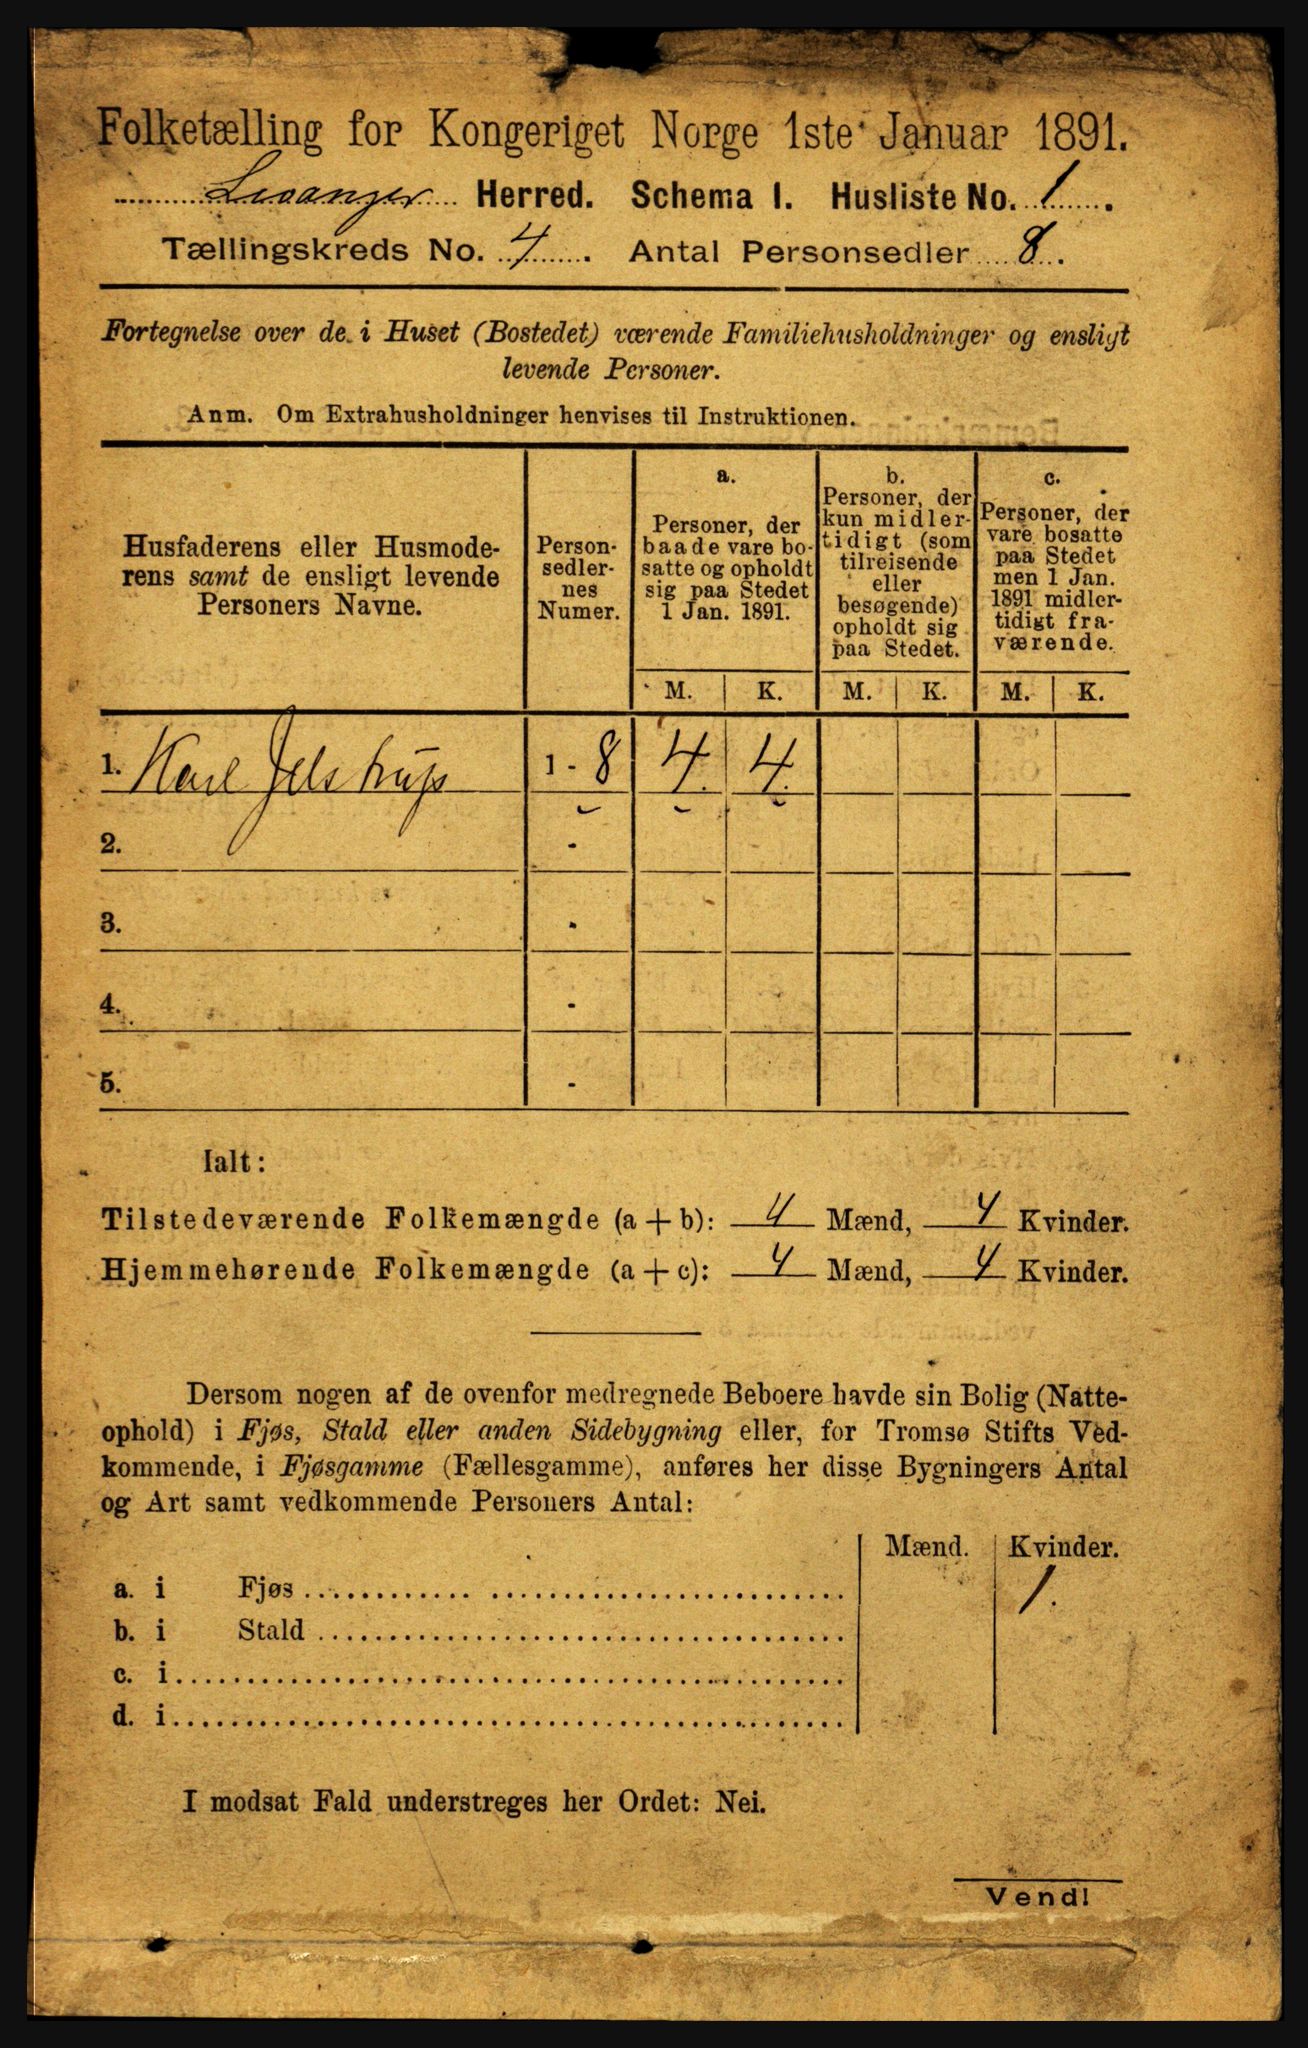 Folketælling for Kongeriget Norge 1ste Januar 1891.
Levanger Herred. Schema I. Husliste No. 1.
Tællingskreds No. 4. Antal Personsedler 8.
Fortegnelse over de i Huset (Bostedet) værende Familiehusholdninger og ensligt
levende Personer.
Anm. Om Extrahusholdninger henvises til Instruktionen.
Husfaderens eller Husmode-
rens samt de ensligt levende
Personers Navne.
Person-
sedler-
nes
Numer.
a.
Personer, der
baade vare bo-
satte og opholdt
sig paa Stedet
1 Jan. 1891.
b.
Personer, der
kun midler-
tidigt (som
tilreisende
eller
besøgende)
opholdt sig
paa Stedet.
c.
Personer, der
vare bosatte
paa Stedet
men 1 Jan.
1891 midler-
tidigt fra-
værende.
M. K. M. K. M. K.
1. Karl Jelstrup 1 - 8 4. 4.
2. -
3. -
4. -
5. -
Ialt:
Tilstedeværende Folkemængde (a + b): 4 Mænd, 4 Kvinder.
Hjemmehørende Folkemængde (a + c): 4 Mænd, 4 Kvinder.
Dersom nogen af de ovenfor medregnede Beboere havde sin Bolig (Natte-
ophold) i Fjøs, Stald eller anden Sidebygning eller, for Tromsø Stifts Ved-
kommende, i Fjøsgamme (Fællesgamme), anføres her disse Bygningers Antal
og Art samt vedkommende Personers Antal:
Mænd. Kvinder.
a. i Fjøs 1.
b. i Stald
c. i
d. i
I modsat Fald understreges her Ordet: Nei.
Vend!